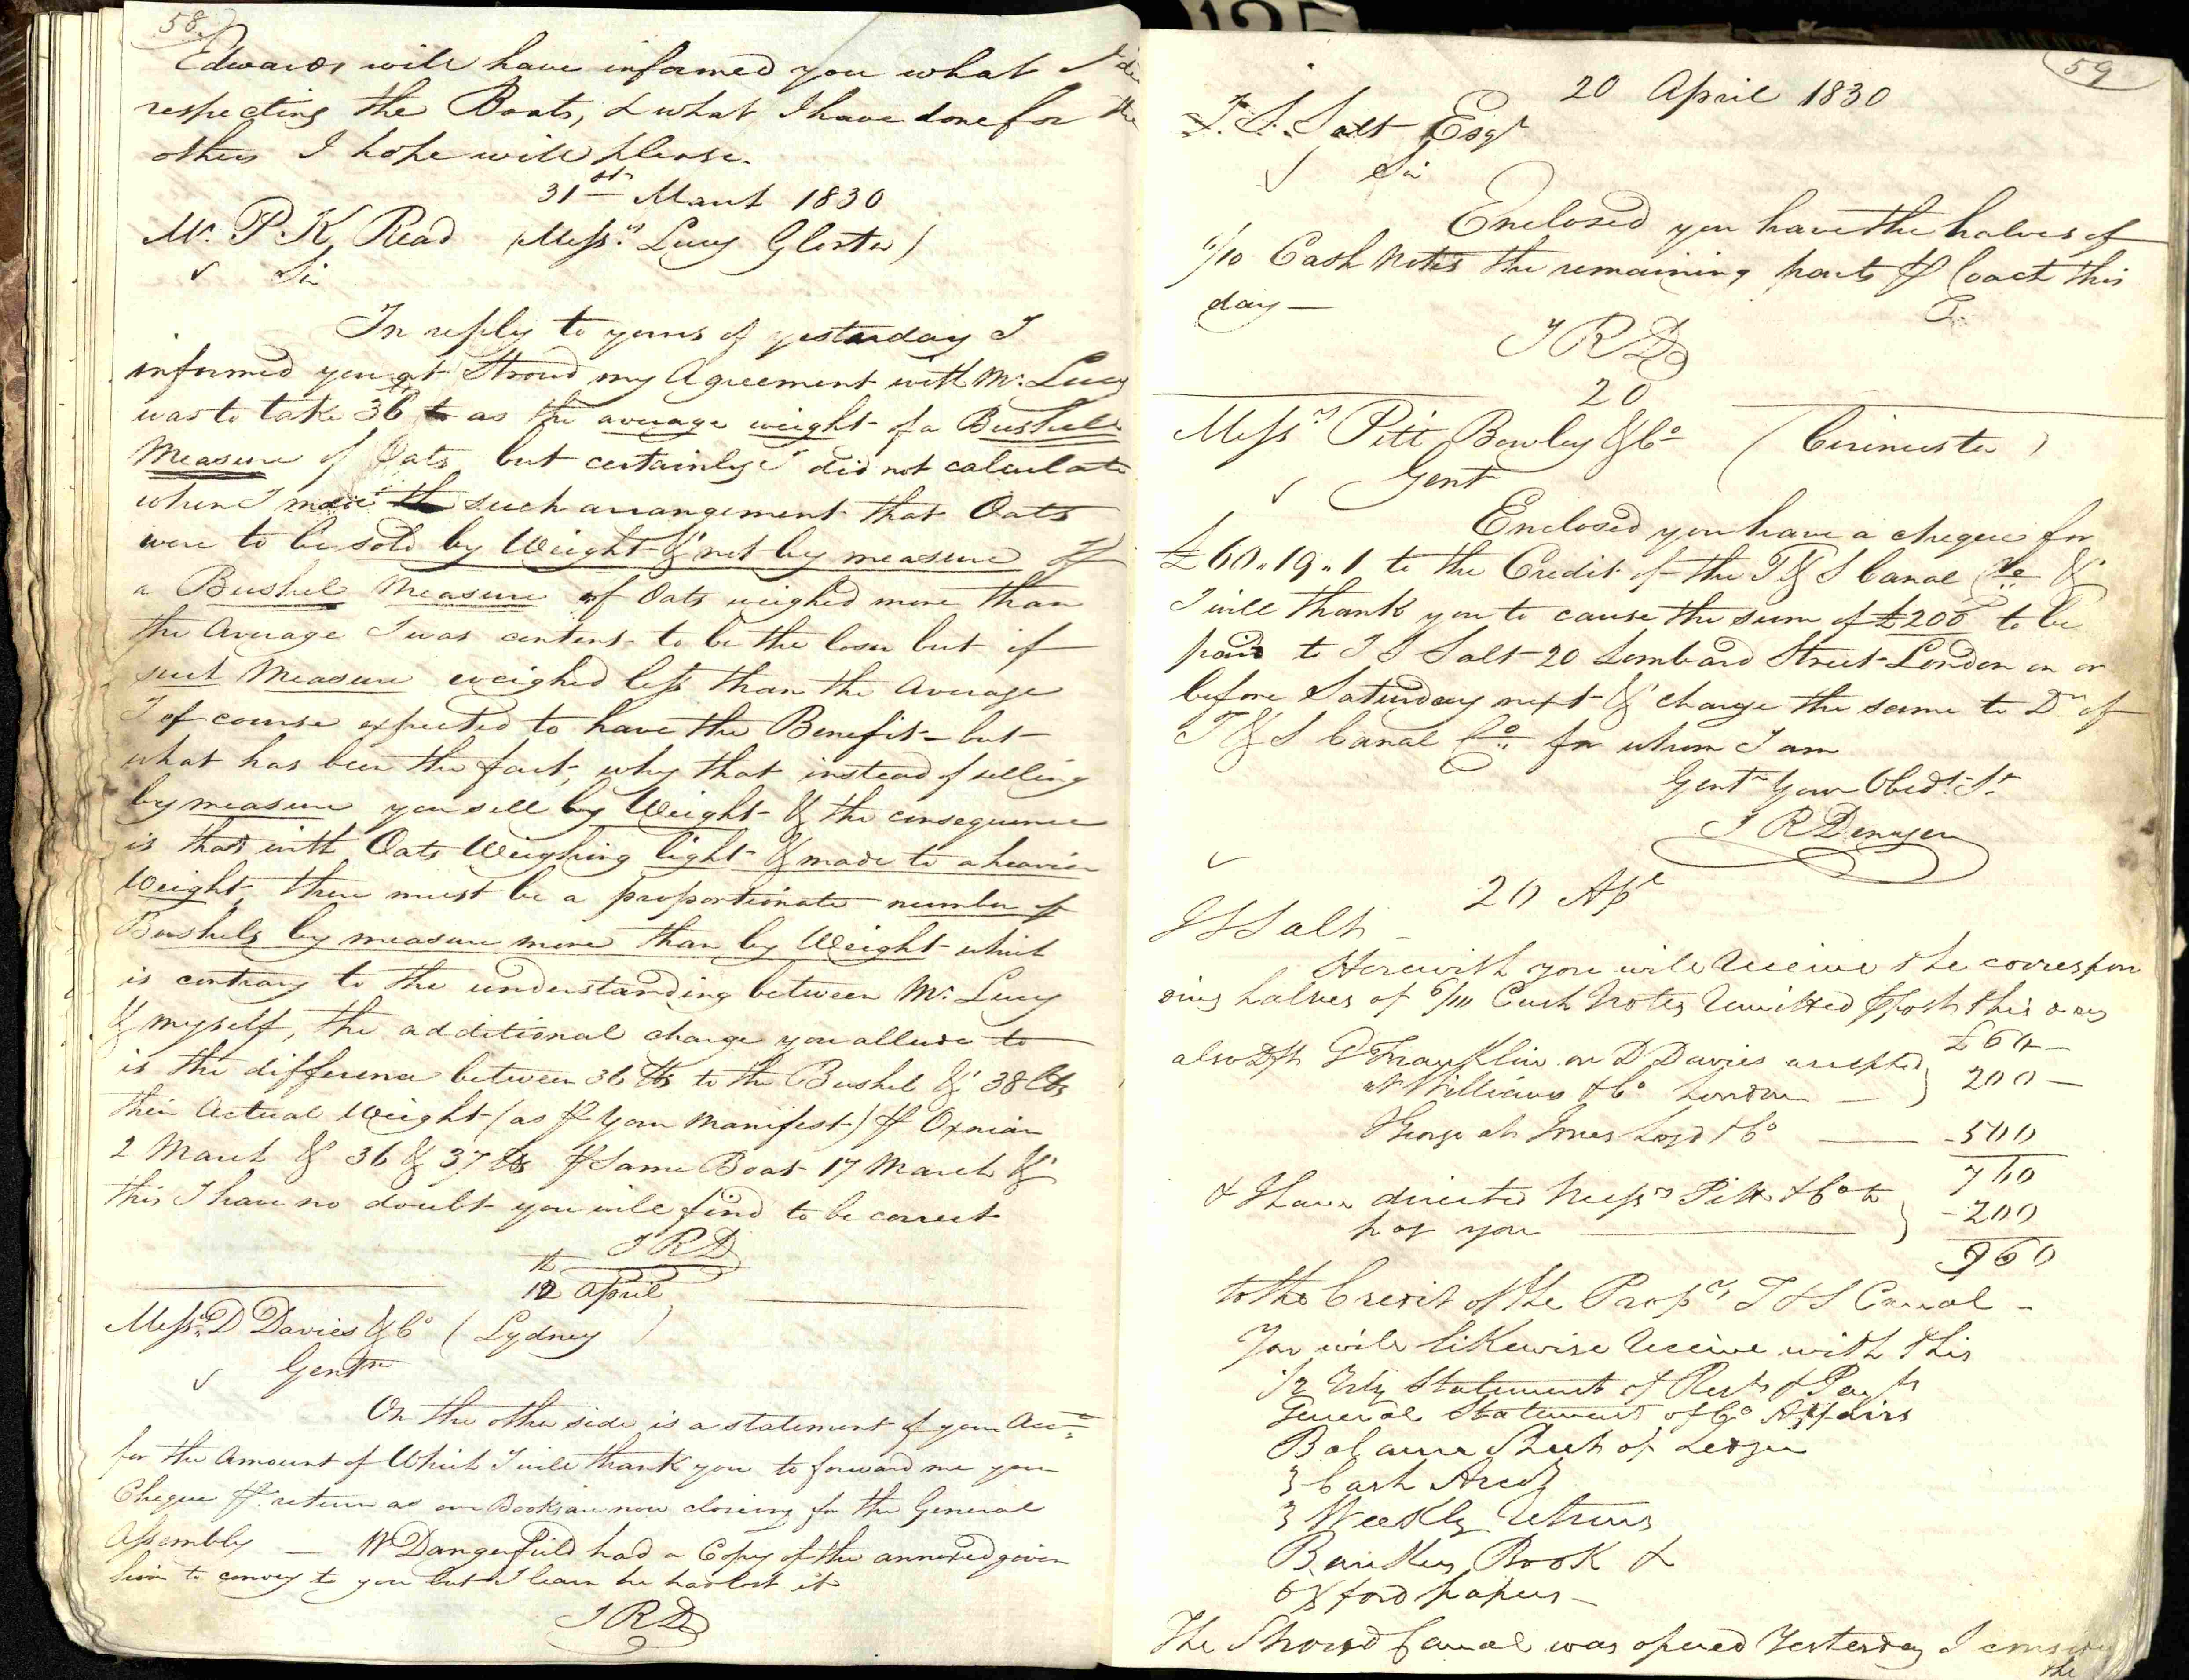 58.
Edwards will have informed you what I did
respecting the Boats, & what I have done for the
others I hope will please.
31st March 1830
Mr. P. K. Read (Messrs Lucy Glester)
✓ Sir
In reply to yours of yesterday I
informed you at Stroud my Agreement with Mr. Lucy
was to take 36 lb as the average weight of a Bushell
Measure of Oats but certainly I did not calculate
when I made such arrangement that Oats
were to be sold by Weight & not by measure If
a Bushel Measure of Oats weighed more than
the Average I was content to be the loser but if
such Measure weighed less than the Average
I of course expected to have the Benefit - but
what has been the fact, why that instead of selling
by measure you sell by Weight - & the consequence
is that with Oats Weighing light & made to a heavier
Weight, there must be a proportionate number of
Bushels by measure more than by Weight which
is contrary to the understanding between Mr. Lucy
& myself, the additional charge you allude to
is the difference between 36 lbs to the Bushel & 38 lbs
their Actual Weight (as ⅌ Your Manifest) ⅌
2 March & 36 & 37 lbs ⅌ Same Boat 17 March &
this I have no doubt you will find to be correct
J R D
12th April
Messrs D Davies & Co (Lydney)
✓ Gentn
On the other side is a statement of your Acco:
for the Amount of Which I will thank you to forward me your
Cheque ⅌ return as our Books are now closing for the General
Assembly — W Dangerfield had a Copy of the annexed given
him to convey to you but I learn he has lost it
J R D
59
20 April 1830
T. S. Salt Esqr
✓ Sir
Enclosed you have the halves of
6/10 Cash Notes the remaining parts ⅌ Coach this
day —
J R D
20
Messrs Pitt Bowley & Co (Cirencester)
✓ Gent
Enclosed you have a cheque for
£60.19.1 to the Credit of the T & S Canal Co &
I will thank you to cause the sum of £200 to be
paid to T S Salt 20 Lombard Street London on or
before Saturday next & charge the same to Dr of
T & S Canal Co. for whom I am
Gentn Your Obedt. St.
J R Denyer
✓
20 Apl
T S Salt —
Herewith you will Receive the correspon
ding halves of 6/10 Cash Notes Remitted ⅌ post this day
£60 —
also Dft G Franklin on D Davies accepted
at Williams & Co London — } 200 —
George at Jones Loyd & Co — 500
760
& I have directed Messrs Pitt & Co to
pay you — } 200
960
to the Credit of the Proprs T & S Canal —
You will likewise Receive with this
1/2 Yrly Statement of Rects & Payts
General Statement of Co Affairs
Balance Sheet of Ledger
3 Cash Accts
3 Weekly Returns
Bankers Book &
Oxford papers —
The Stroud Canal was opened Yesterday I consider
the